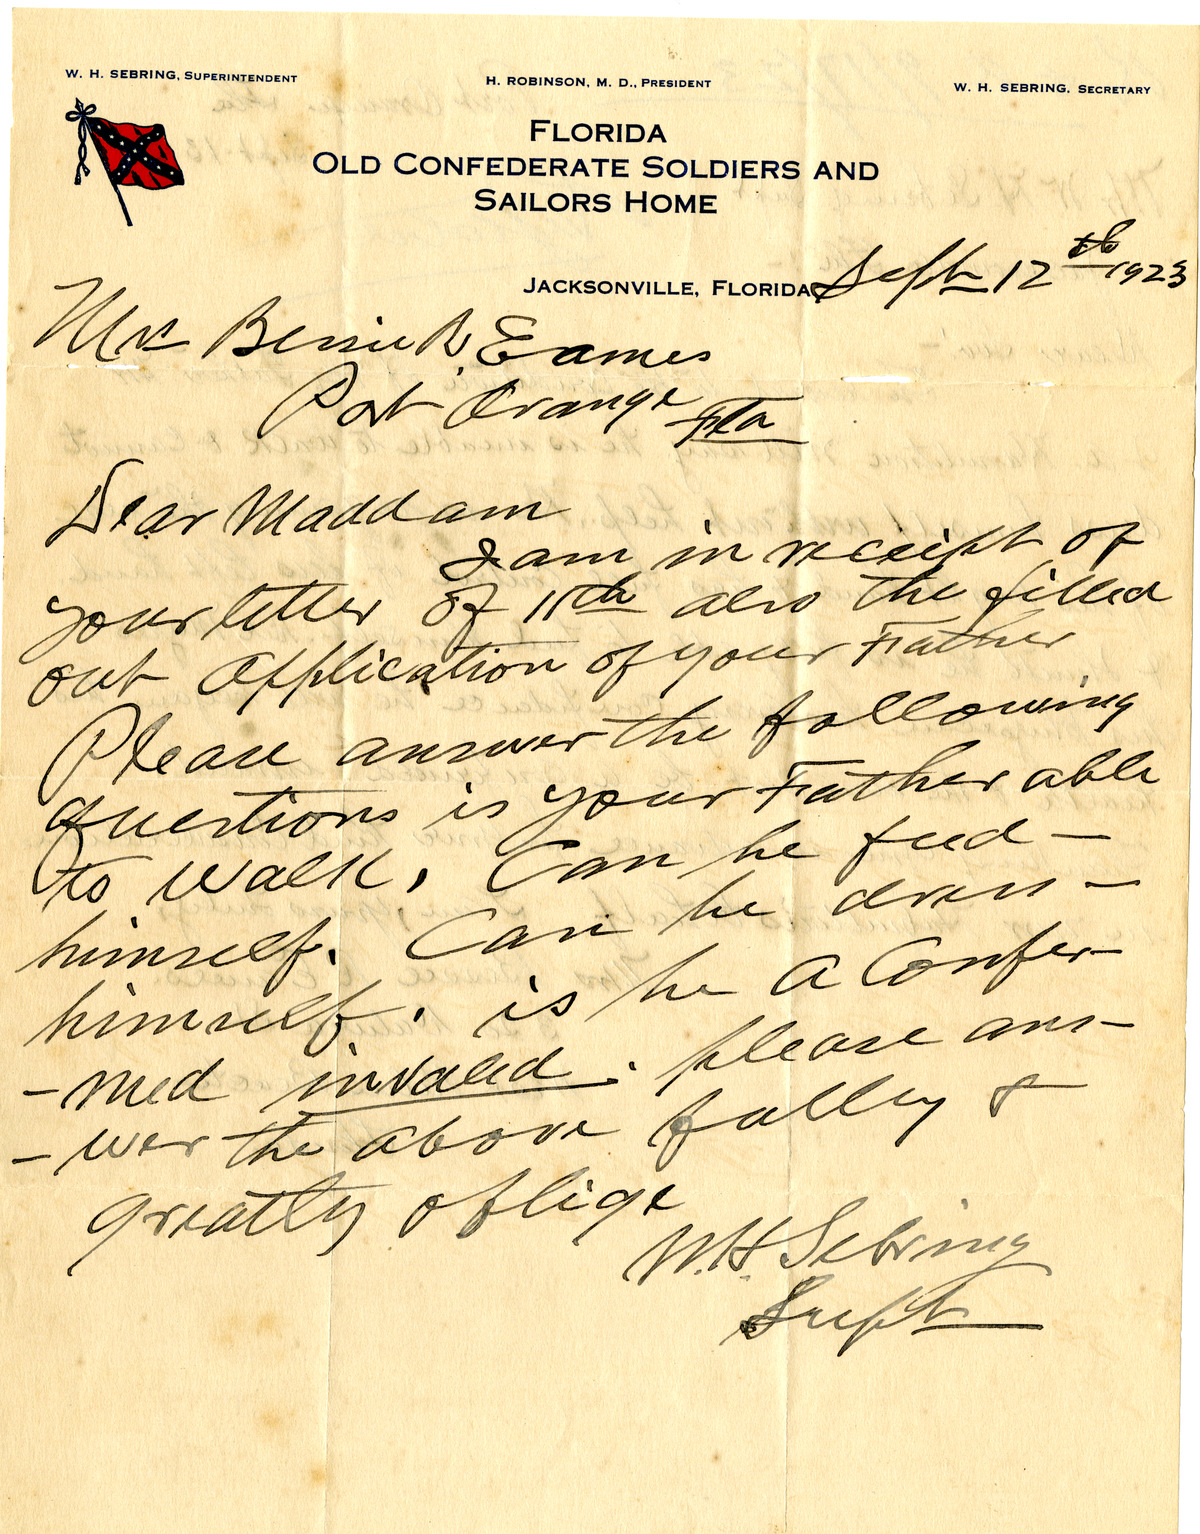 W. H. SEBRING, SUPERINTENDENT
H. ROBINSON, M. D., PRESIDENT
W. H. SEBRING, SECRETARY
FLORIDA
OLD CONFEDERATE SOLDIERS AND
SAILORS HOME
JACKSONVILLE, FLORIDA Sept 12th 1923
Mrs Bessie R. Eames
Port Orange Fla
Dear Maddam
I am in receipt of
your letter of 11th also the filled
out application of your Father
Please answer the following
questions is your Father able
to walk. Can he feed -
himself. Can he dress -
himself. is he a Confer-
-med invaled. please ans-
-wer the above fulley &
greatly oblige
W. H. Sebring
Supt